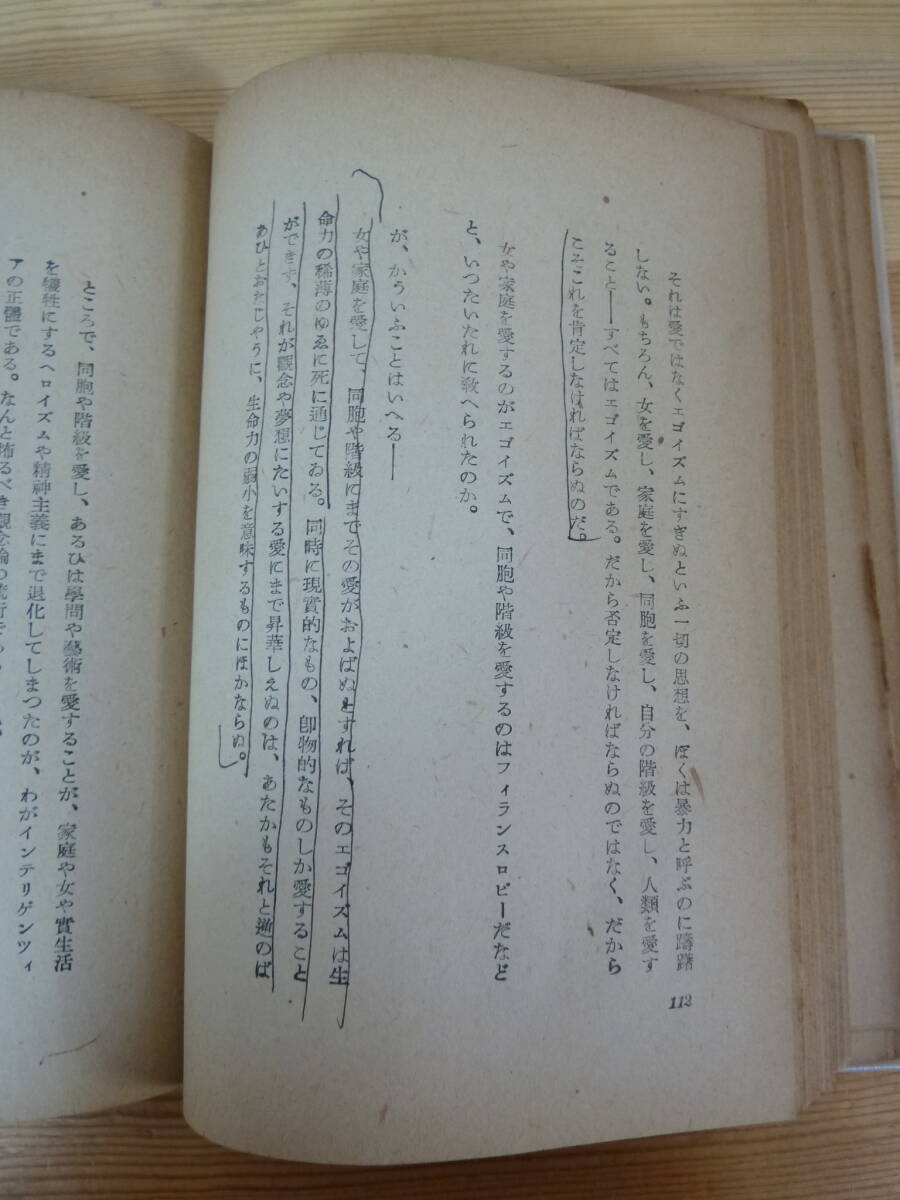 それは愛ではなくエゴイズムにすぎぬといふ一切の思想を、ぼくは暴力と呼ぶのに躊躇
しない。もちろん、女を愛し、家庭を愛し、同胞を愛し、自分の階級を愛し、人類を愛す
ること――すべてはエゴイズムである。だから否定しなければならぬのではなく、だから
こそこれを肯定しなければならぬのだ。
女や家庭を愛するのがエゴイズムで、同胞や階級を愛するのはフィランスロピーだなど
と、いつたいたれに敎へられたのか。
が、かういふことはいへる――
女や家庭を愛して、同胞や階級にまでその愛がおよばぬとすれば、そのエゴイズムは生
命力の稀薄のゆゑに死に通じてゐる。同時に現實的なもの、卽物的なものしか愛すること
ができず、それが觀念や夢想にたいする愛にまで昇華しえぬのは、あたかもそれと逆のば
あひとおなじやうに、生命力の弱小を意味するものにほかならぬ。
112
ところで、同胞や階級を愛し、あるひは學問や藝術を愛することが、家庭や女や實生活
を犧牲にするヘロイズムや精神主義にまで退化してしまつたのが、わがインテリゲンツィ
アの正體である。なんと怖るべき觀念論の流行